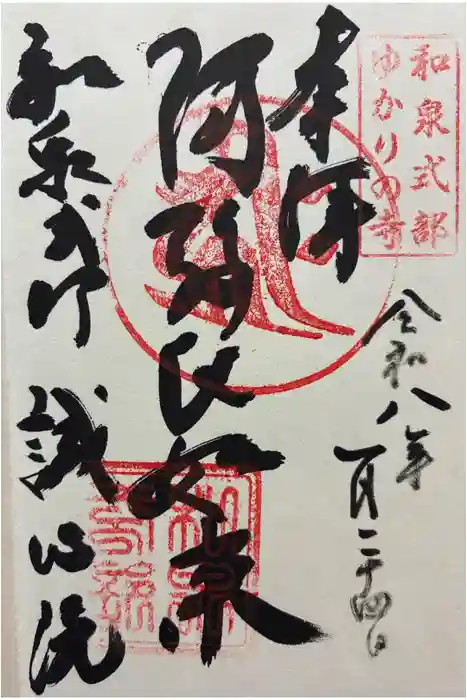 和泉式部
ゆかりの寺
令和八年
一月二十四日
奉拝
阿弥陀如来
和泉式部 誠心院